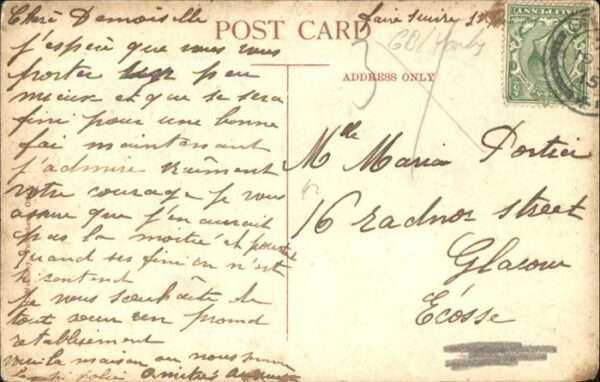 Cherè Demoiselle
j'espère que vous vous
portez un peu
mieux et que se sera
fini pour une bonne
foi maintenant
j'admire vraiment
votre courage je vous
assure que j'en aurait
pas la moitié et pourtant
quand ses fini on n'est
content
je vous souhaite de
tout cœur un promd
retablisement
voici la maison ou nous
jolie amitiés
POST CARD
faire suivre
3
ADDRESS ONLY
HALFPENNY
Mlle Maria Portier
16 radnor street
Glacow
Ecósse